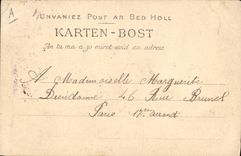 A
Unvaniez Post ar Bed Holl
KARTEN-BOST
An tu-ma a zo miret evid an adres
A Mademoiselle Marguerite
46 Rue Brunel
Paris 17e arrond